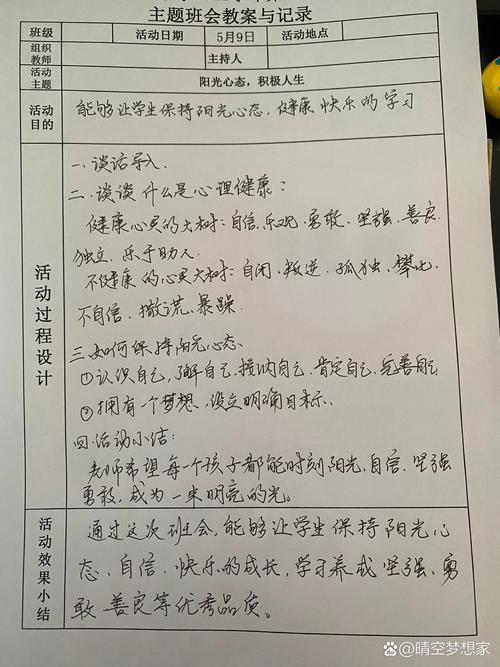 主题班会教案与记录
班级 活动日期 5月9日 活动地点
组织教师 主持人
活动主题 阳光心态，积极人生
活动目的 能够让学生保持阳光心态，健康快乐的学习
活动过程设计
一.谈话导入.
二.谈谈什么是心理健康：
健康心灵的大树：自信、乐观、勇敢、坚强、善良
独立、乐于助人.
不健康的心灵大树：自闭、叛逆、孤独、攀比、
不自信、撒谎、暴躁.
三.如何保持阳光心态.
①认识自己，了解自己，接纳自己，肯定自己，完善自己
②拥有一个梦想，设立明确目标.
四.活动小结：
老师希望每一个孩子都能时刻阳光、自信、坚强
勇敢，成为一束明亮的光。
活动效果小结
通过这次班会，能够让学生保持阳光心
态、自信、快乐的成长，学习养成坚强、勇
敢善良等优秀品质。
@晴空梦想家